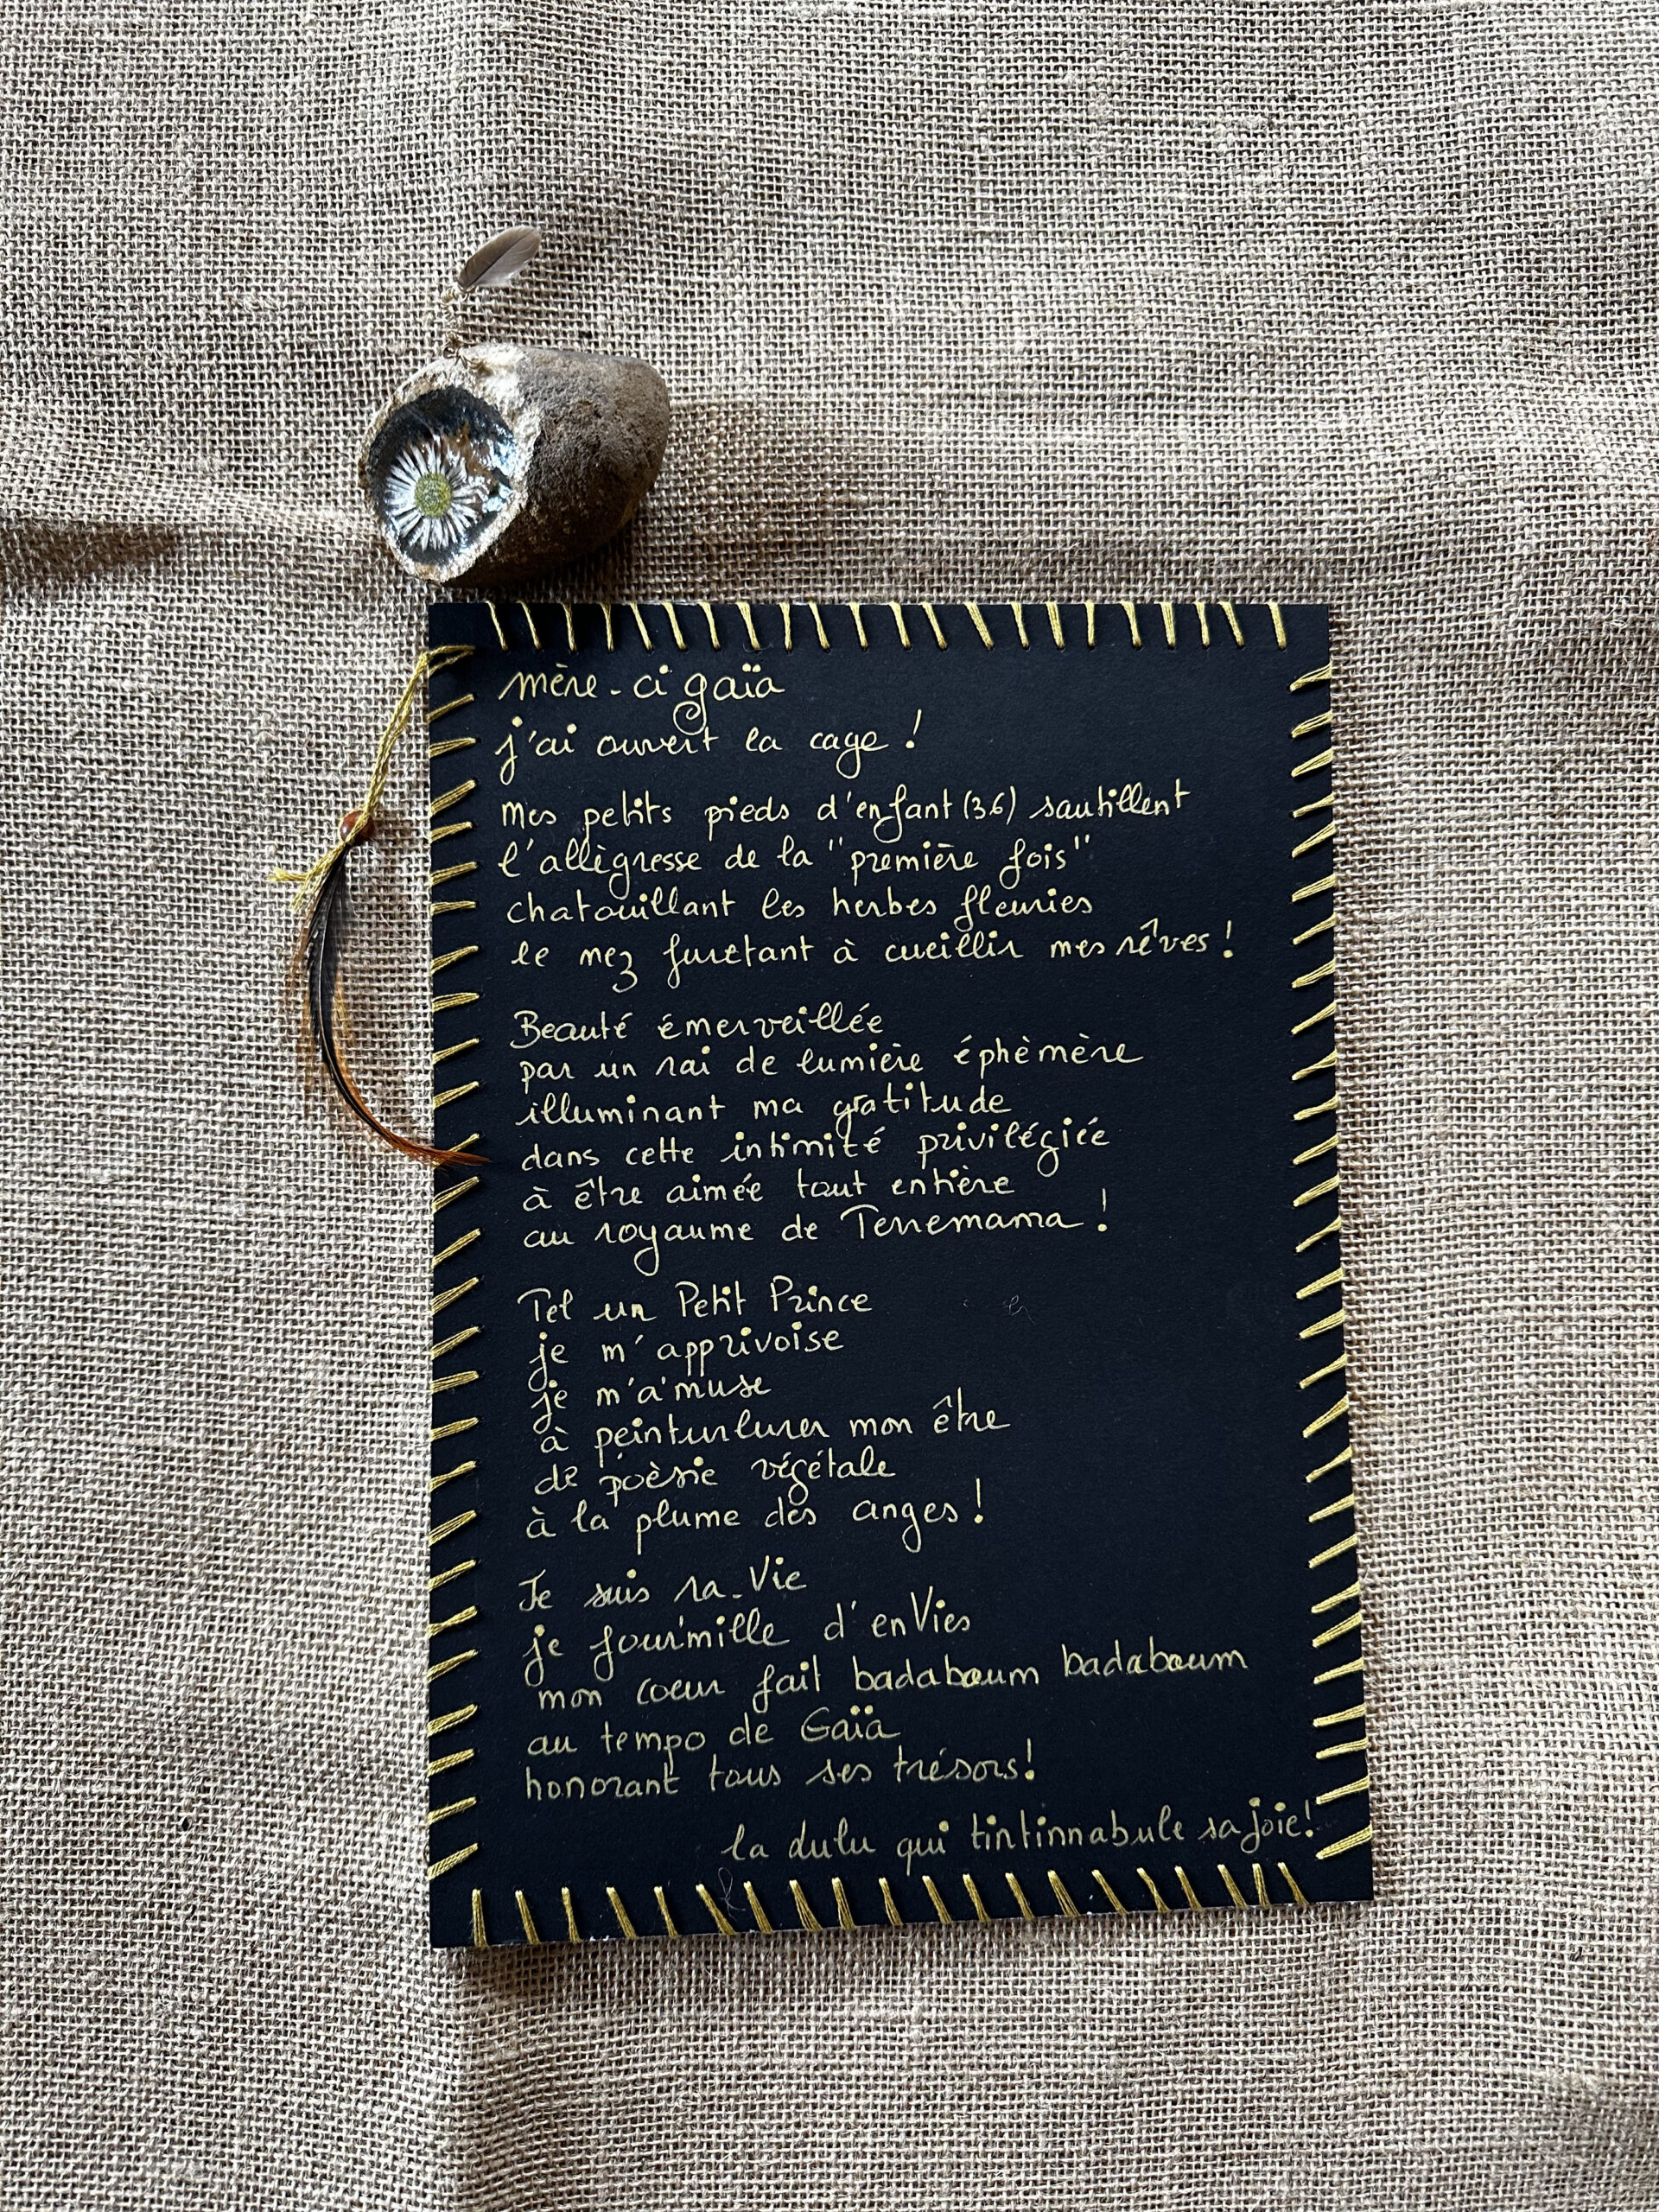 mère-ci gaïa
j'ai ouvert la cage !
mes petits pieds d'enfant (36) sautillent
l'allègresse de la "première fois"
chatouillant les herbes fleuries
le nez furetant à cueillir mes rêves !
Beauté émerveillée
par un rai de lumière éphèmère
illuminant ma gratitude
dans cette intimité privilégiée
à être aimée tout entière
au royaume de Terremama !
Tel un Petit Prince
je m'apprivoise
je m'a'muse
à peinturlurer mon être
de poèsie végétale
à la plume des anges !
Je suis ra-Vie
je four'mille d'enVies
mon coeur fait badaboum badaboum
au tempo de Gaïa
honorant tous ses trésors !
la dulu qui tintinnabule sa joie !